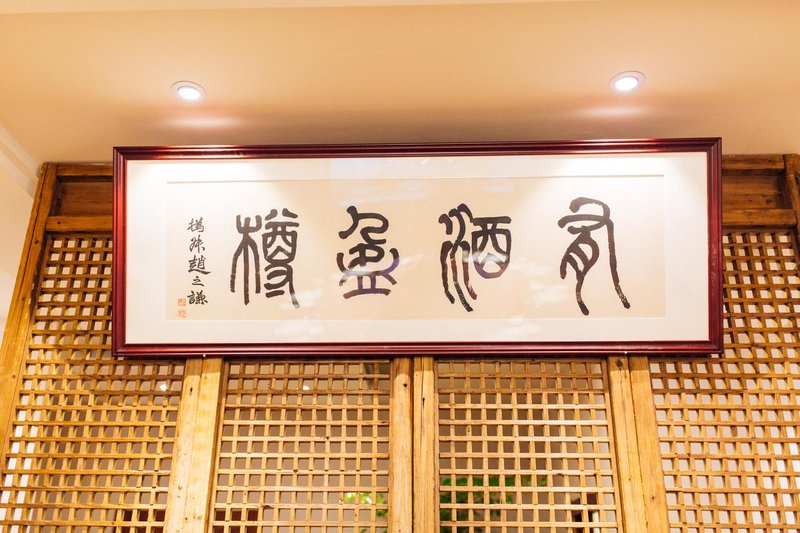 有酒盈樽
撝叔趙之謙